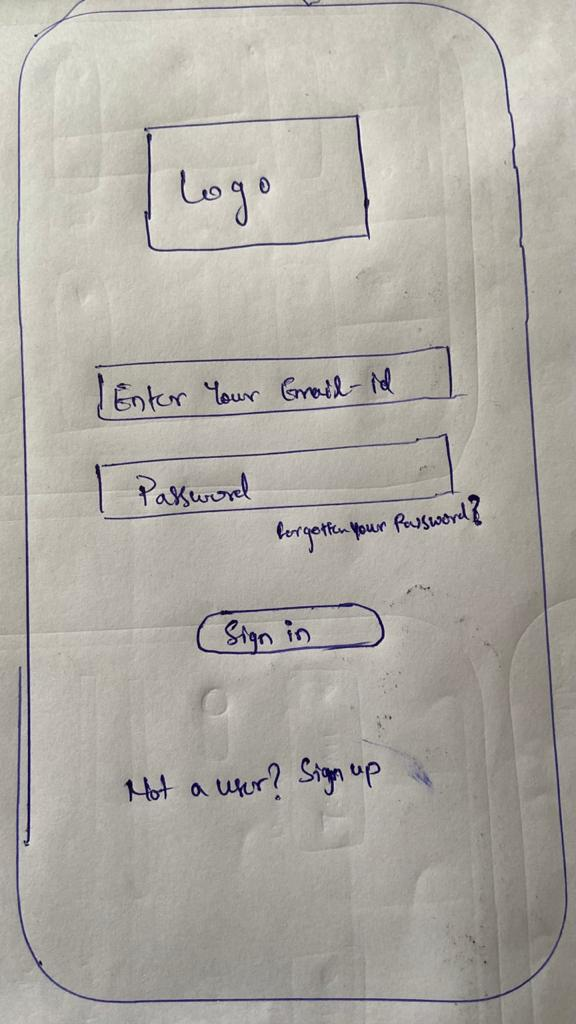 Logo
Enter Your Email-id
Password
Forgotten Your Password?
Sign in
Not a user? Sign up